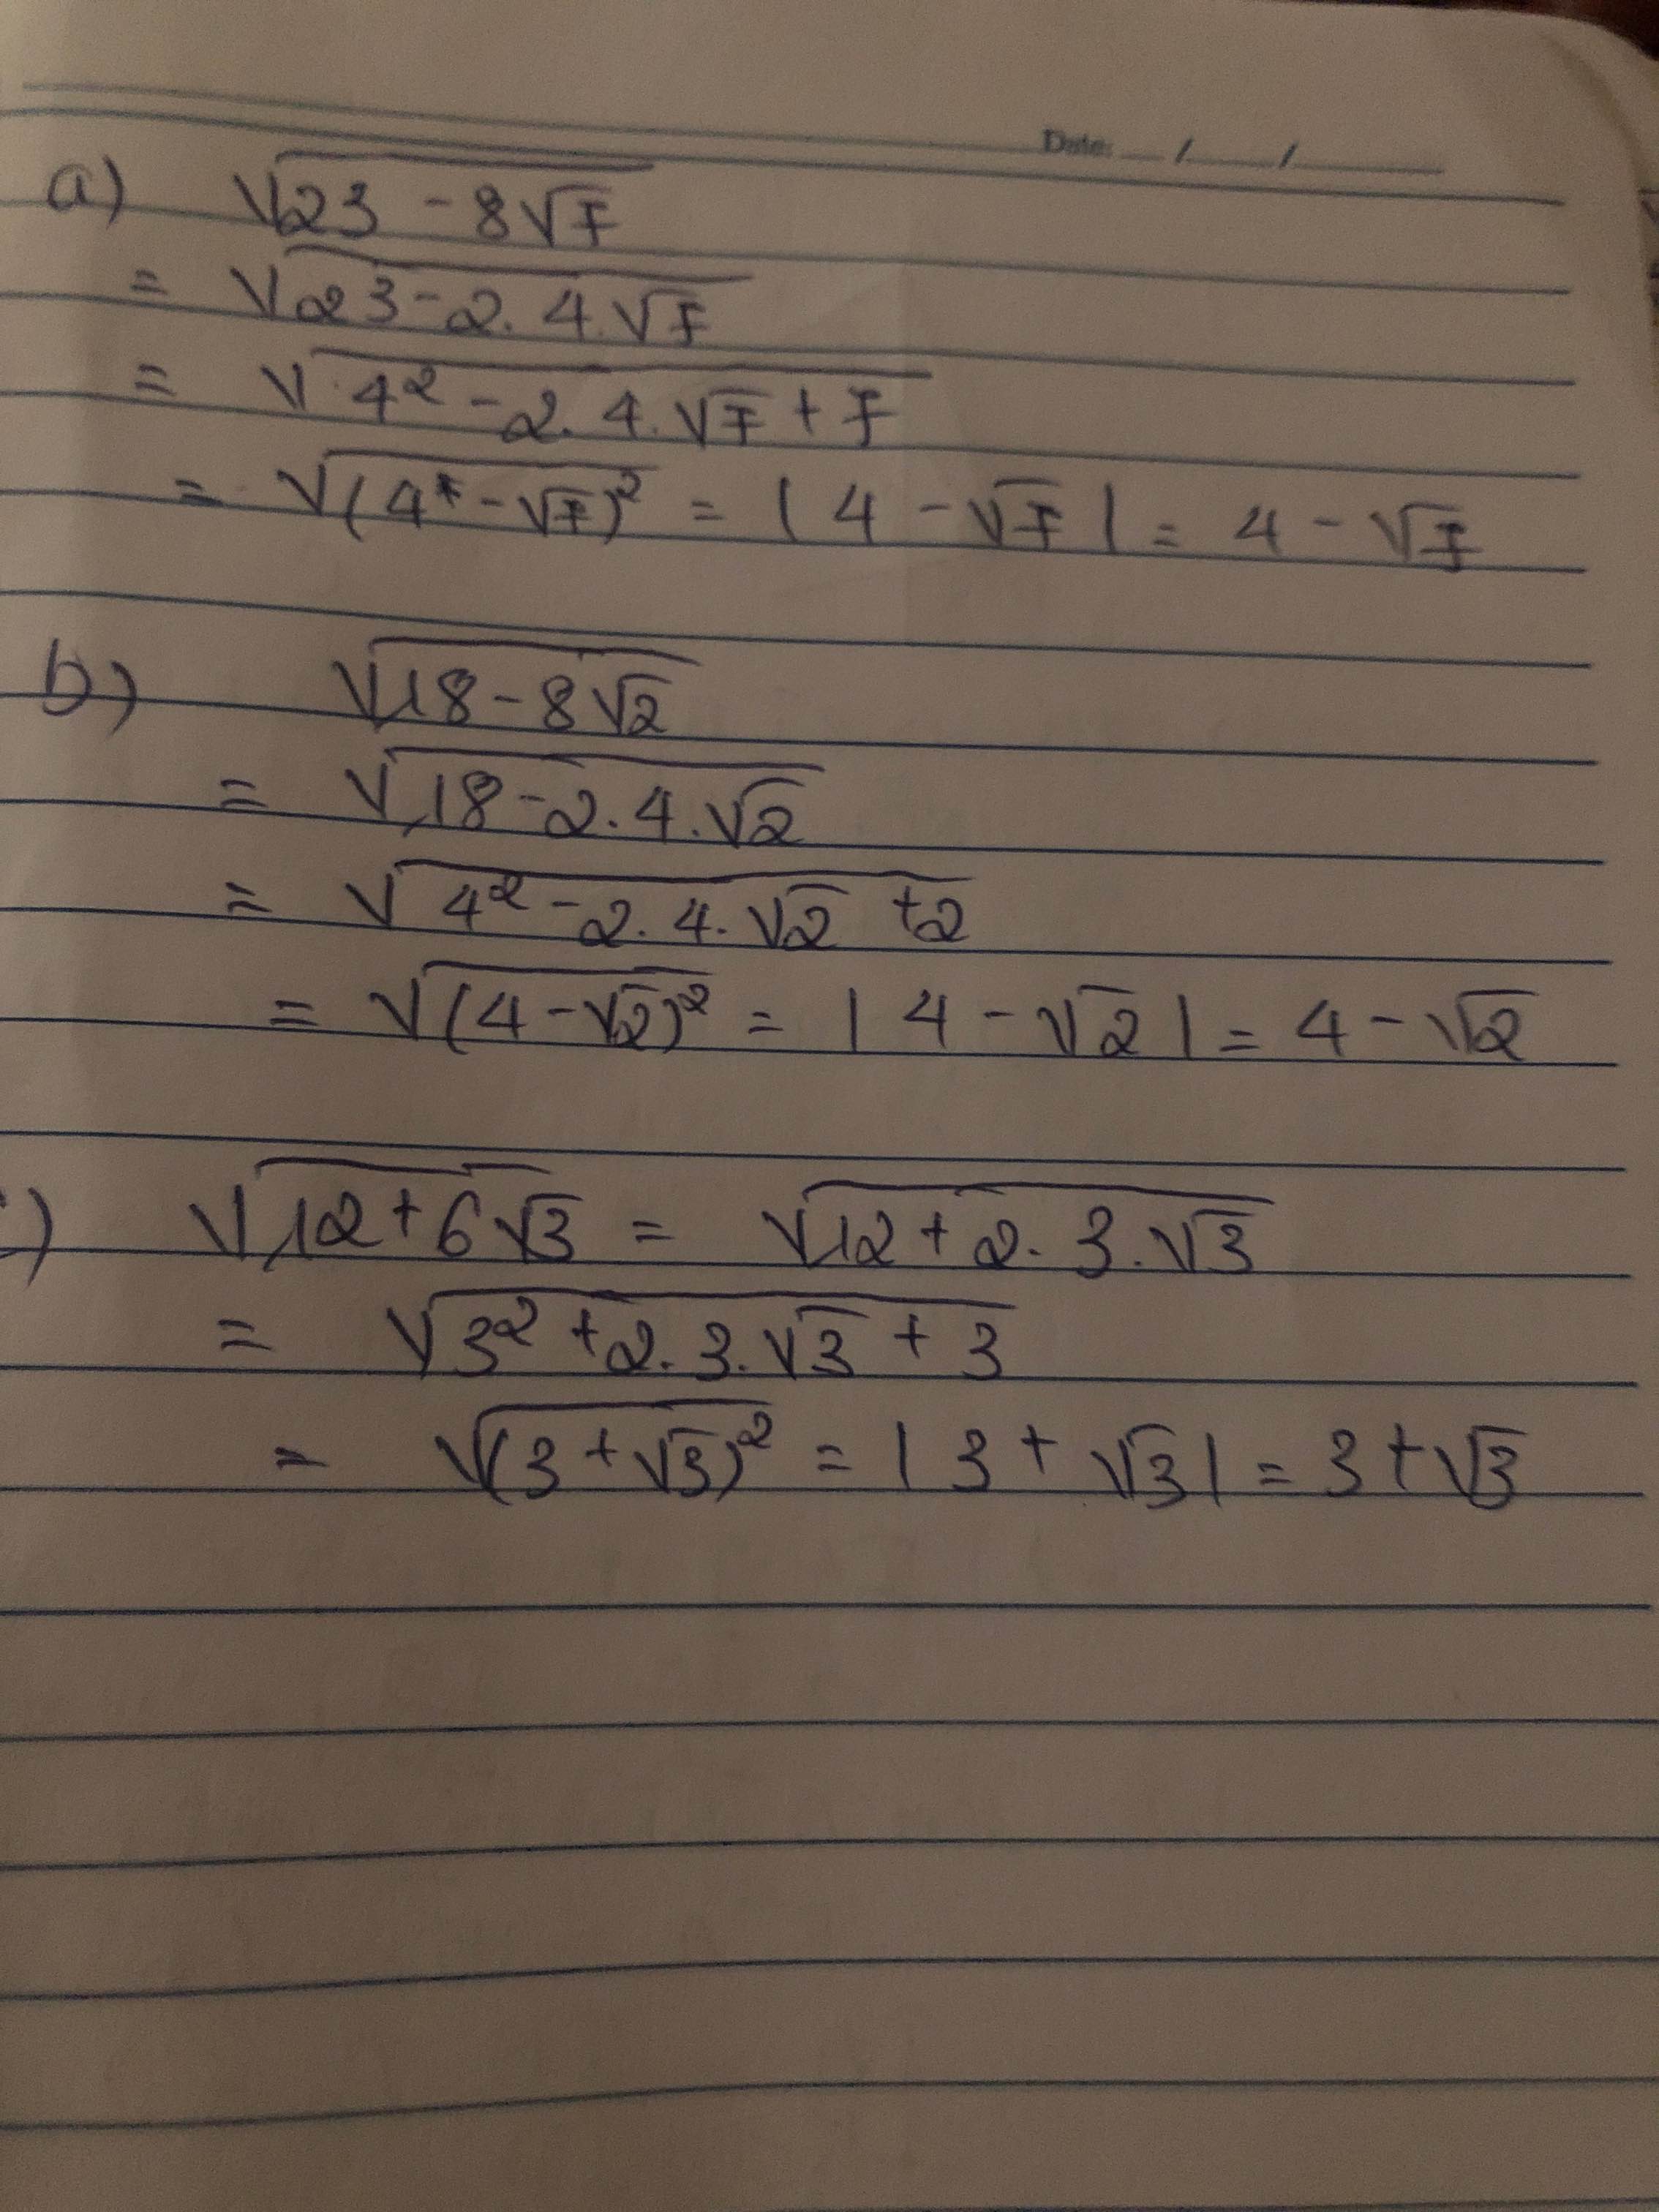 Date: / /
a) √(23 - 8√7)
= √(23 - 2. 4. √7)
= √(4² - 2. 4. √7 + 7)
= √((4 - √7)²) = | 4 - √7 | = 4 - √7
b) √(18 - 8√2)
= √(18 - 2. 4. √2)
= √(4² - 2. 4. √2 + 2)
= √((4 - √2)²) = | 4 - √2 | = 4 - √2
) √(12 + 6√3) = √(12 + 2. 3. √3)
= √(3² + 2. 3. √3 + 3)
= √((3 + √3)²) = | 3 + √3 | = 3 + √3